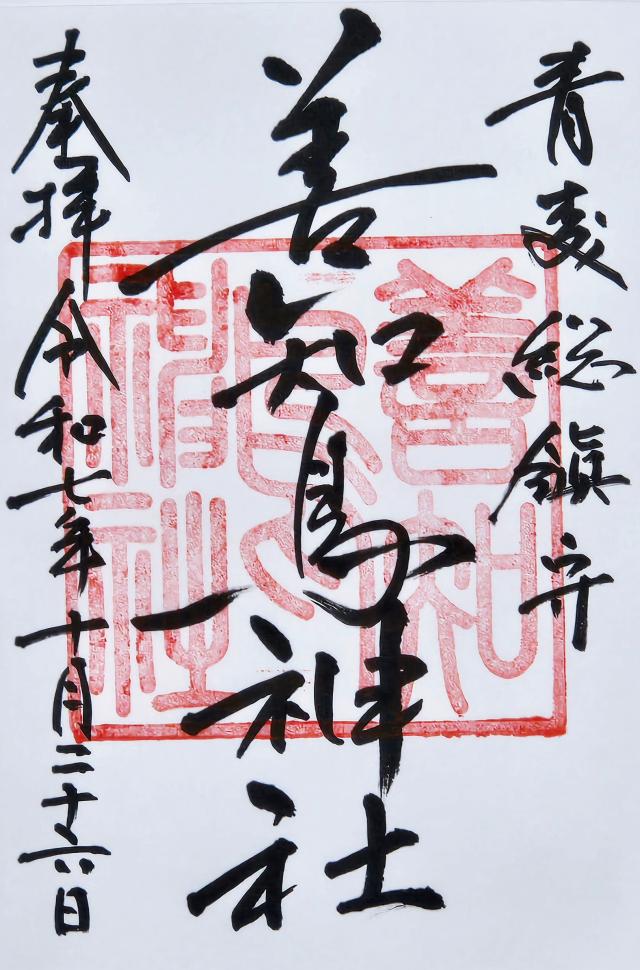 青森総鎮守
善知鳥神社
奉拝 令和七年十月二十六日
善知鳥神社